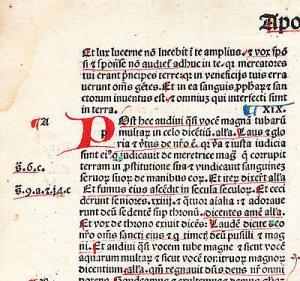 Apo
Et lux lucerne nō lucebit ī te amplius, ⁊ vox spō
si ⁊ sponse nō audiet̄ adhuc in te. qꝛ mercatores
tui erant prīcipes terre. qꝛ in veneficijs tuis erra
uerunt om̄s gētes. Et in ea sanguis ꝓphaꝝ ⁊ san
ctorum inuentus est. ⁊ omniuʒ qui interfecti sunt
in terra.
XIX.
A
Post hec audiui qs̄i vocē magnā tubarū
multaꝝ in celo dicētiū. alľa. Laus ⁊ glo
ria ⁊ ꝟtus deo nr̄o ē. qꝛ ꝟa ⁊ iusta iudicia
sunt ei⁹. qui iudicauit de meretrice magͣ que corrupit
terram in ꝓstitutione sua ⁊ vindicauit sanguinem
seruoꝝ suoꝝ de manibus eoꝝ. Et iteꝝ dixerunt alľa.
Et fumus eius ascēdit in secula seculoꝝ. Et ceci
derunt seniores .xxiiij. ⁊ q̄tuor aīalia ⁊ adoraue
runt deū sedentē suꝑ thronū. dicentes amē alľa.
Et vox de throno exiuit dicēs. Laudē dicite deo
nr̄o om̄s sancti eius ⁊ q timetꝭ deū pusilli ⁊ mag
ni. Et audiui qs̄i vocem tube magne ⁊ sicut vocē
aquarum multaꝝ ⁊ sicut vocē tonitruoꝝ magnoꝝ
dicentium alľa. qm̄ regnauit dn̄s deus nr̄ omni
g̅.6.c.
g̅.9.a.⁊.14.c